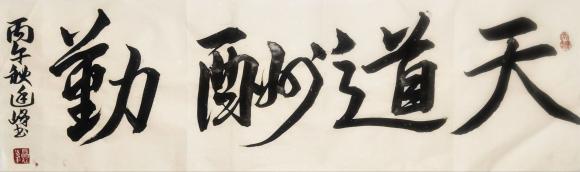 天道酬勤
丙午秋廷峰书